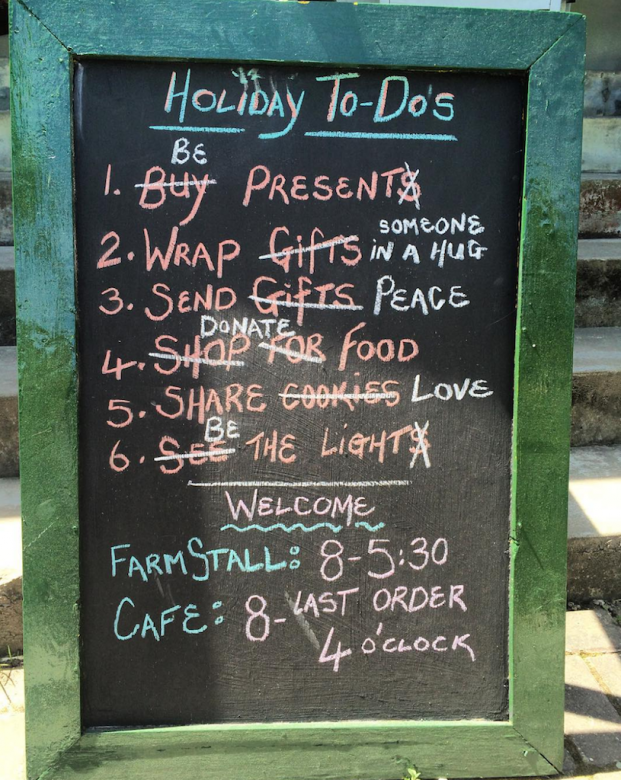 HOLIDAY TO-DO'S
BE
1. BUY PRESENTS
2. WRAP GIFTS SOMEONE IN A HUG
3. SEND GIFTS PEACE
DONATE
4. SHOP FOR FOOD
5. SHARE COOKIES LOVE
BE
6. SEE THE LIGHTS
WELCOME
FARMSTALL: 8-5:30
CAFE: 8-LAST ORDER
4 O'CLOCK